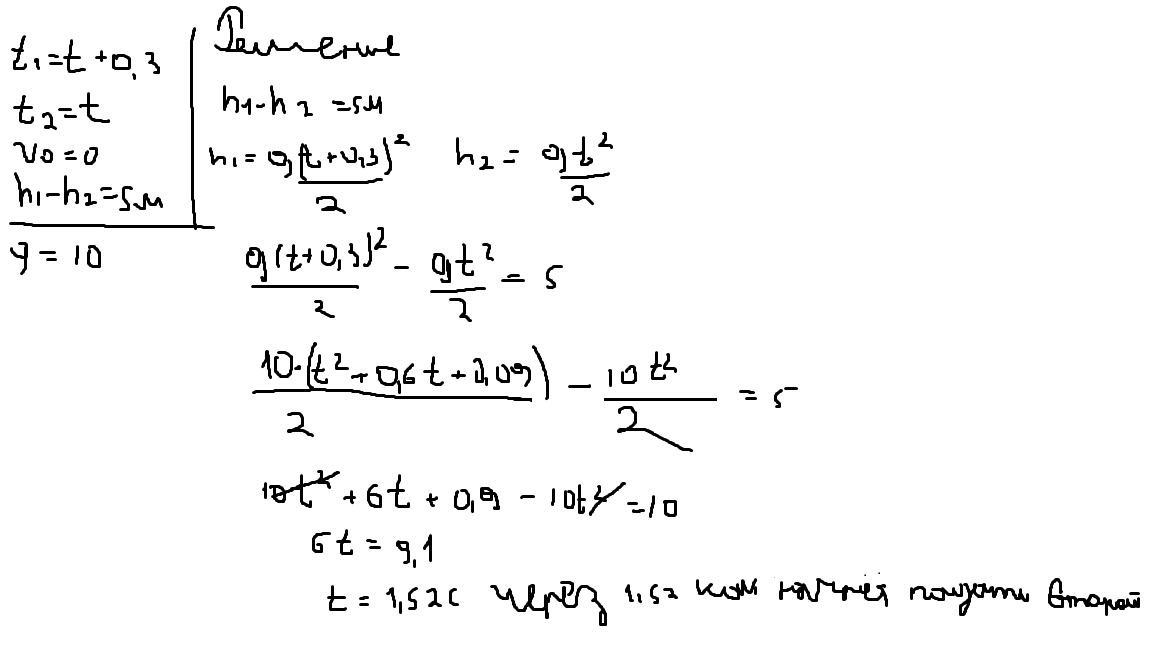 t₁=t+0,3
t₂=t
v0=0
h₁-h₂=5м
g=10
Решение
h₁-h₂=5м
h₁=g(t+0,3)²/2 h₂=gt²/2
g(t+0,3)²/2 - gt²/2 = 5
10·(t²+0,6t+0,09)/2 - 10t²/2 = 5
10t²+6t+0,9-10t²=10
6t=9,1
t=1,52с через 1,52 как начнёт падать второй